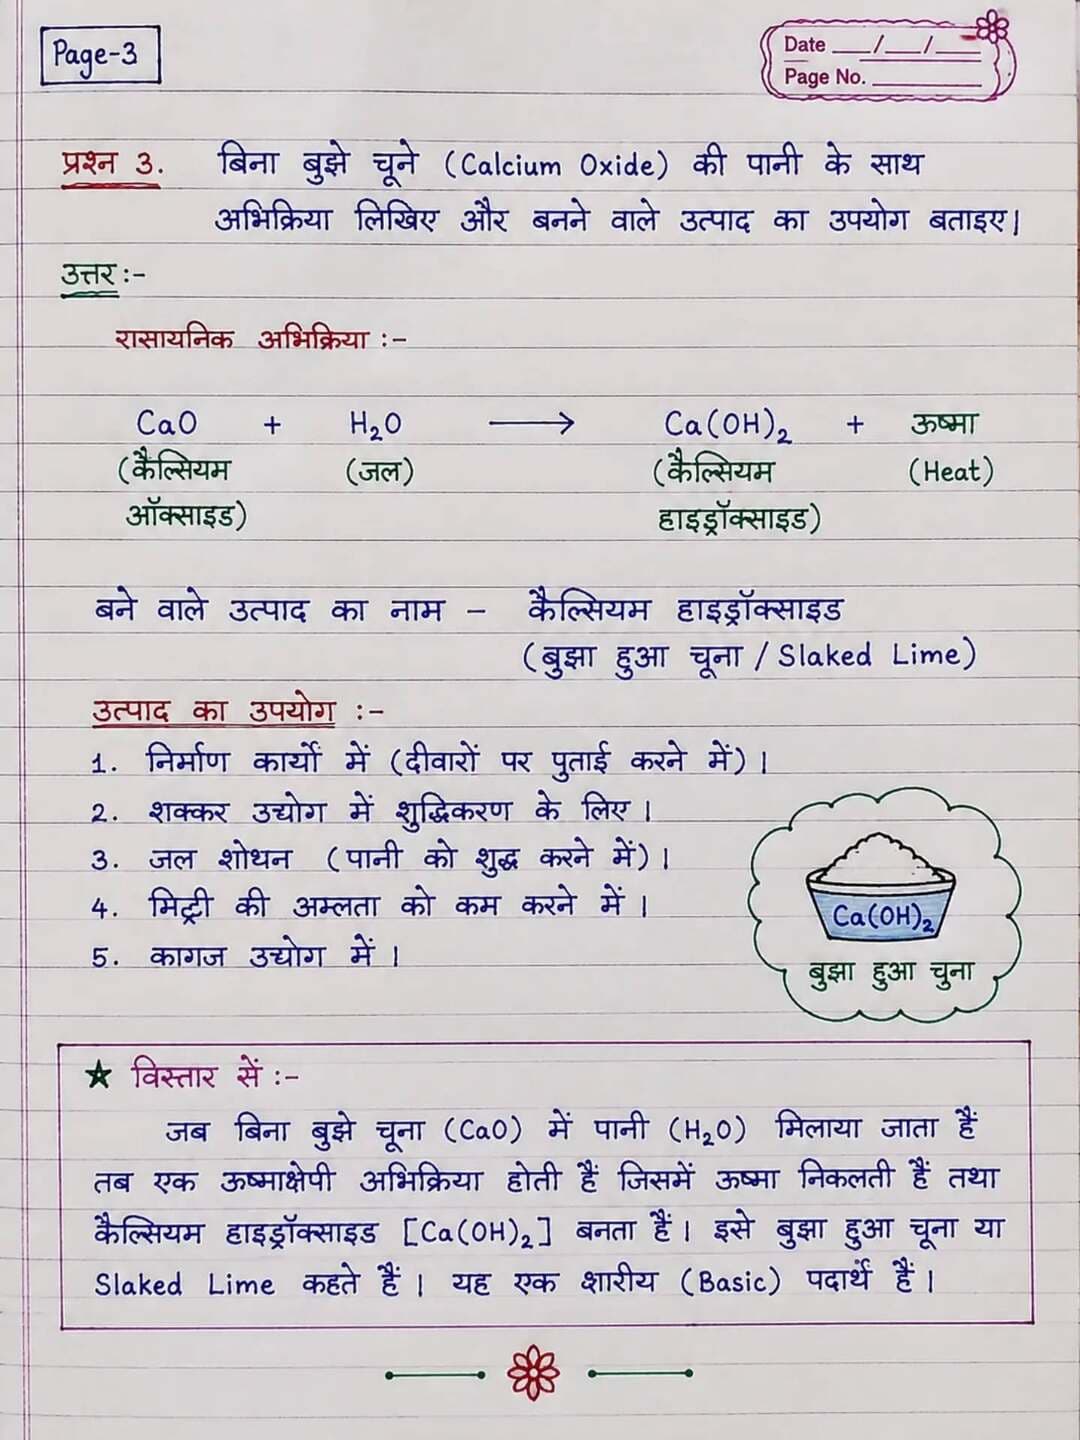 Page-3
Date ___/___/___
Page No. ___________
प्रश्न 3. बिना बुझे चूने (Calcium Oxide) की पानी के साथ
अभिक्रिया लिखिए और बनने वाले उत्पाद का उपयोग बताइए।
उत्तर :-
रासायनिक अभिक्रिया :-
CaO + H₂O ⟶ Ca(OH)₂ + ऊष्मा
(कैल्सियम (जल) (कैल्सियम (Heat)
ऑक्साइड) हाइड्रॉक्साइड)
बने वाले उत्पाद का नाम – कैल्सियम हाइड्रॉक्साइड
(बुझा हुआ चूना / Slaked Lime)
उत्पाद का उपयोग :-
1. निर्माण कार्यों में (दीवारों पर पुताई करने में)।
2. शक्कर उद्योग में शुद्धिकरण के लिए।
3. जल शोधन (पानी को शुद्ध करने में)।
4. मिट्री की अम्लता को कम करने में।
5. कागज उद्योग में।
Ca(OH)₂
बुझा हुआ चुना
★ विस्तार सें :-
जब बिना बुझे चूना (CaO) में पानी (H₂O) मिलाया जाता हैं
तब एक ऊष्माक्षेपी अभिक्रिया होती हैं जिसमें ऊष्मा निकलती हैं तथा
कैल्सियम हाइड्रॉक्साइड [Ca(OH)₂] बनता हैं। इसे बुझा हुआ चूना या
Slaked Lime कहते हैं। यह एक क्षारीय (Basic) पदार्थे हैं।